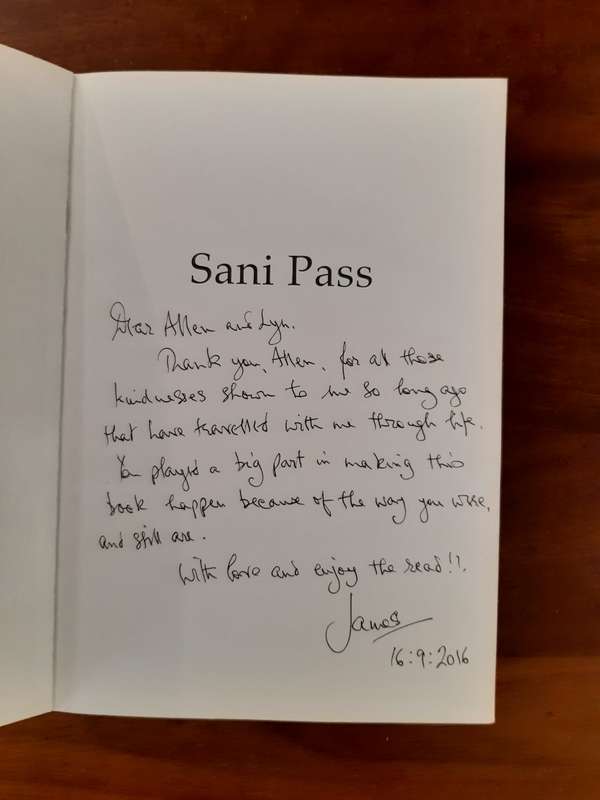 Sani Pass
Dear Allen and Lyn.
Thank you, Allen, for all those
kindnesses shown to me so long ago
that have travelled with me through life.
You played a big part in making this
book happen because of the way you were,
and still are.
With love and enjoy the read!!
James
16:9:2016